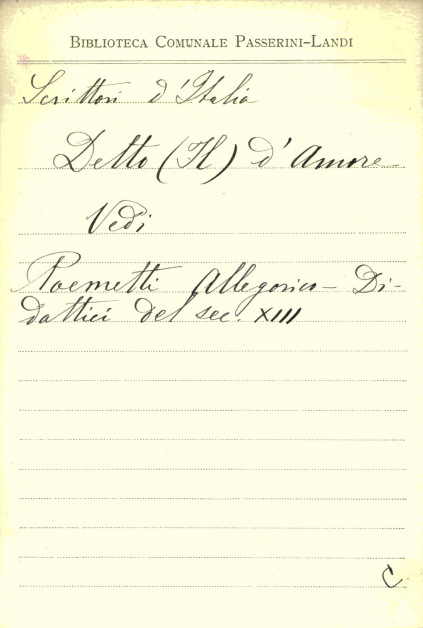 BIBLIOTECA COMUNALE PASSERINI-LANDI
Scrittori d'Italia
Detto (Il) d'Amore
Vedi
Poemetti Allegorico - Di-
dattici del sec. XIII
C